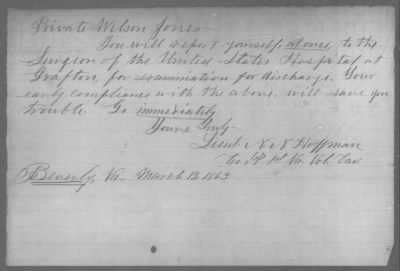 Private Wilson Jones
You will report yourself, at once, to the
Surgeon of the United States Hospital at
Grafton for examination for discharge. Your
early compliance with the above, will save you
trouble. Go immediately
Yours Truly
Lieut N N Hoffman
Co. 1st Va. Vol. Cav
Beverly, Va. March 13 1863